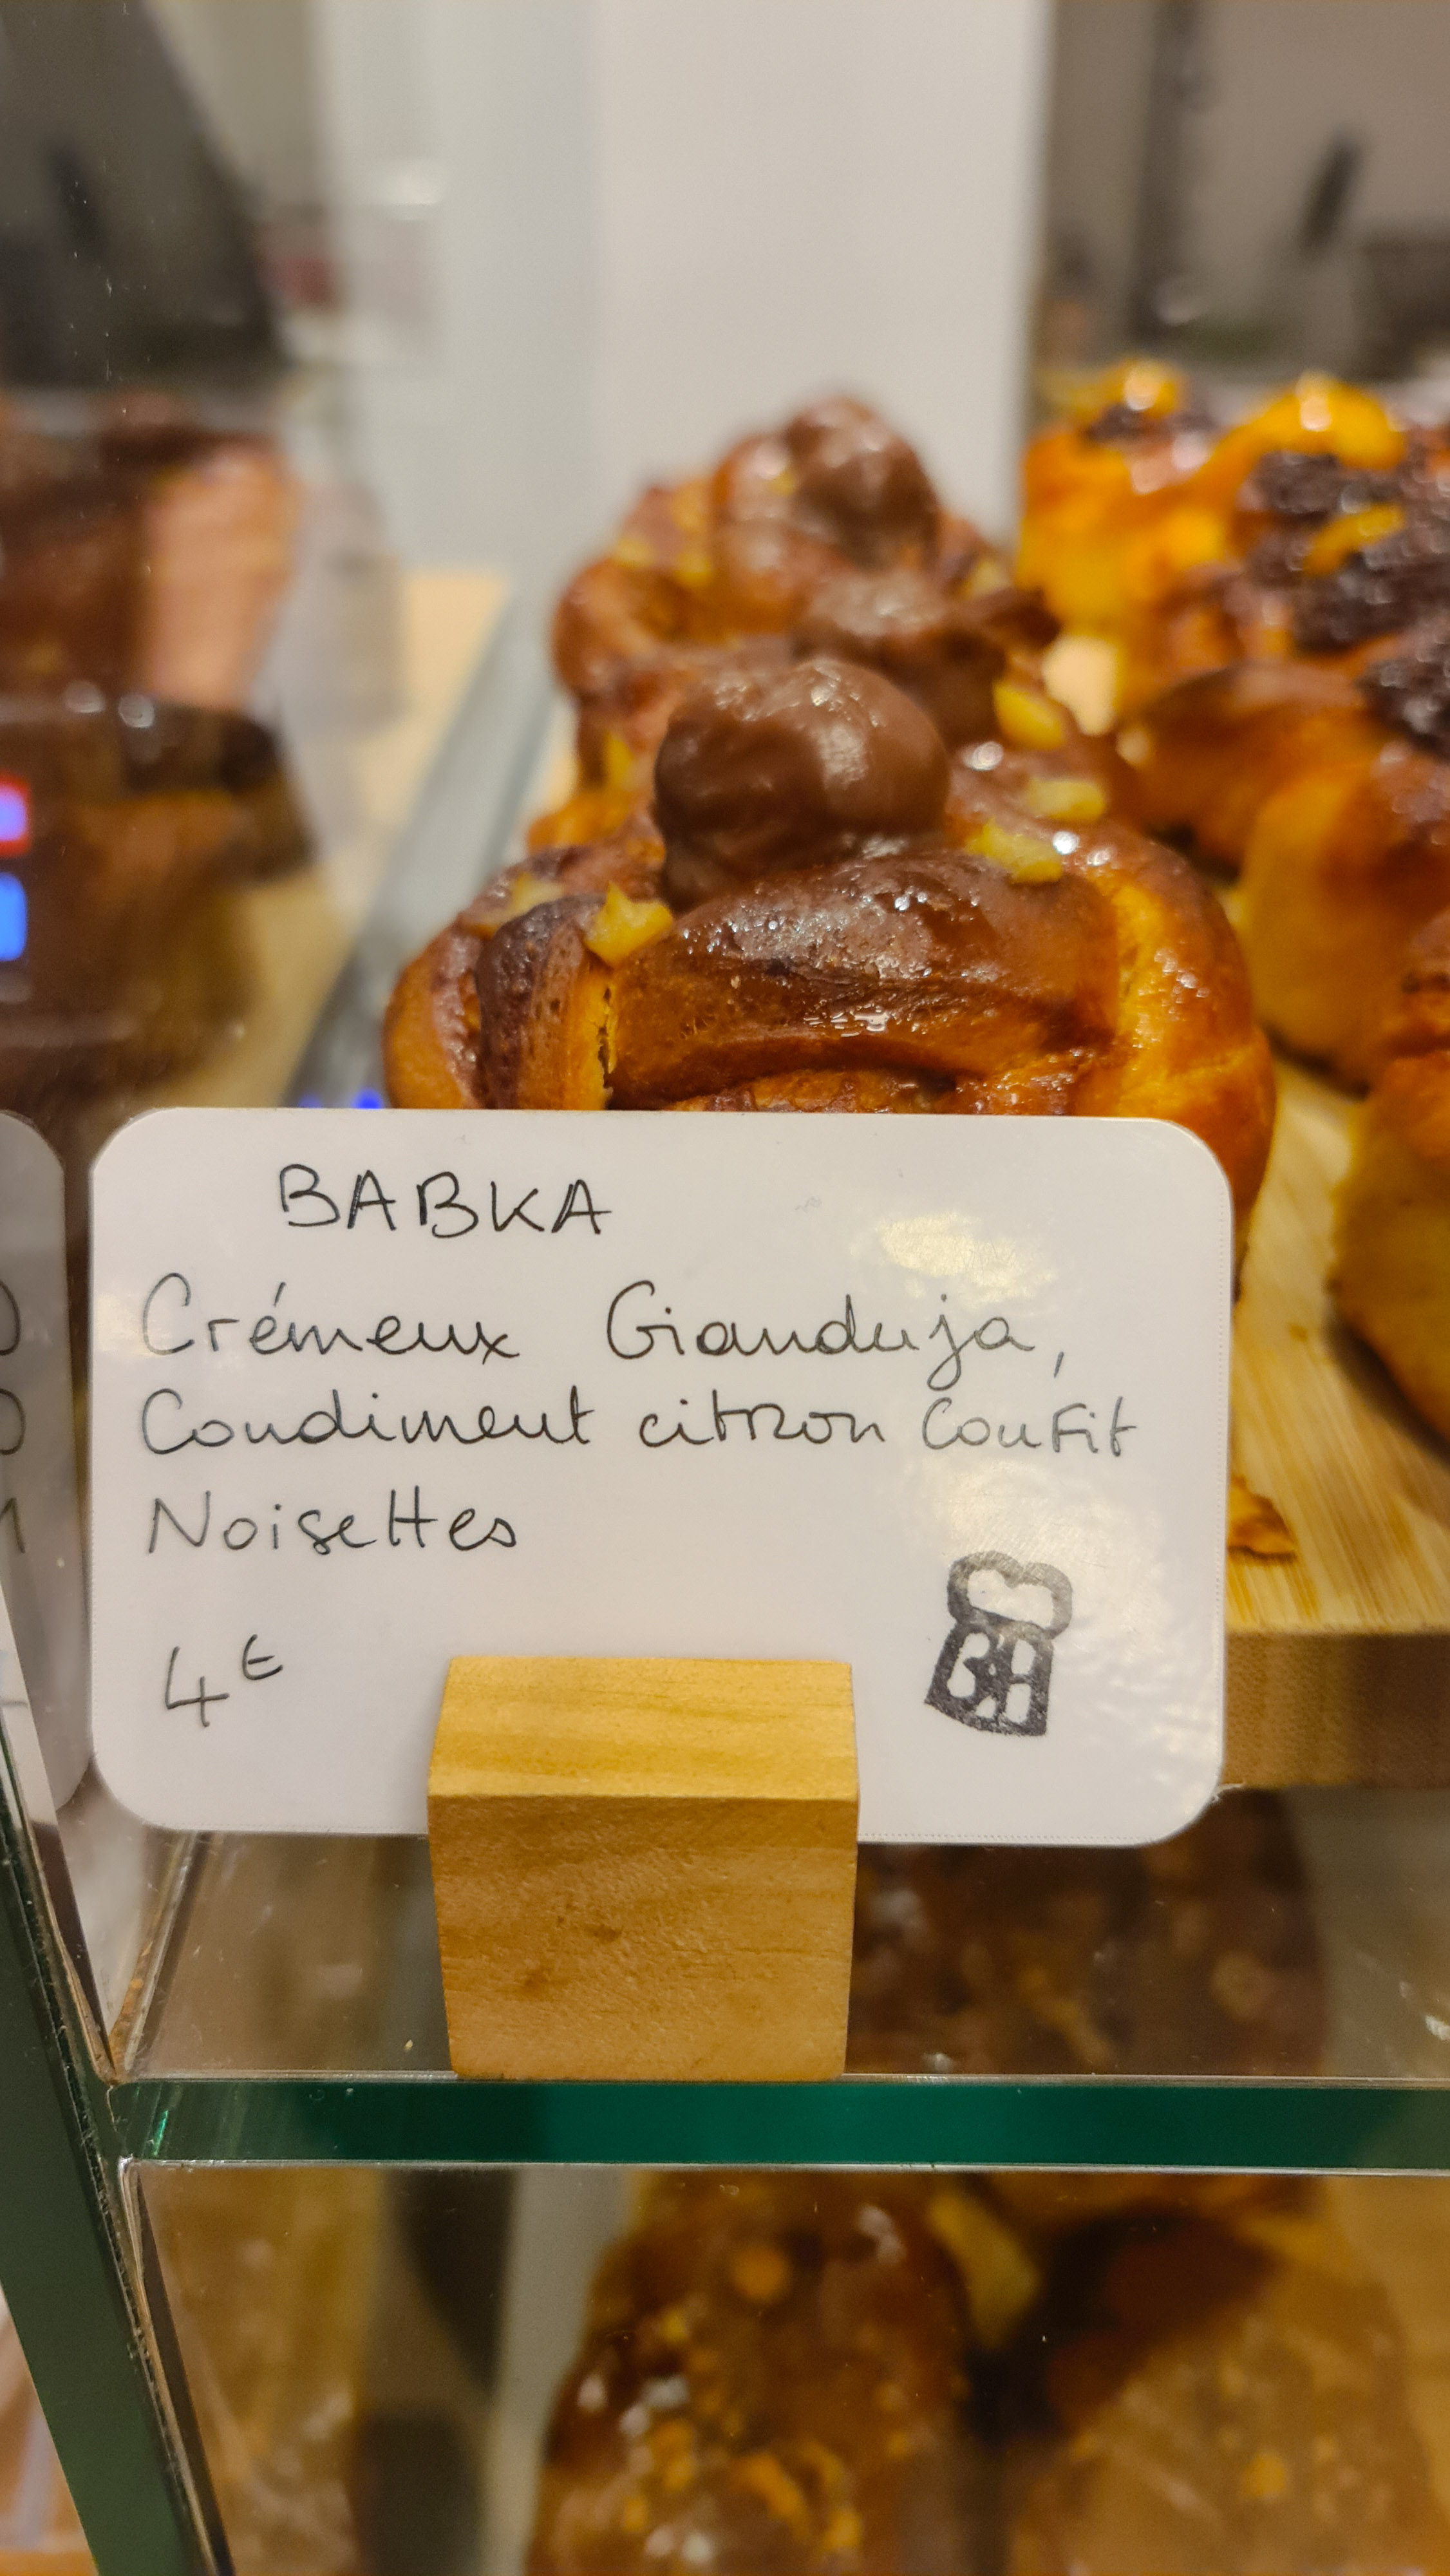 BABKA
Crémeux Gianduja,
Condiment citron Confit
Noisettes
4€